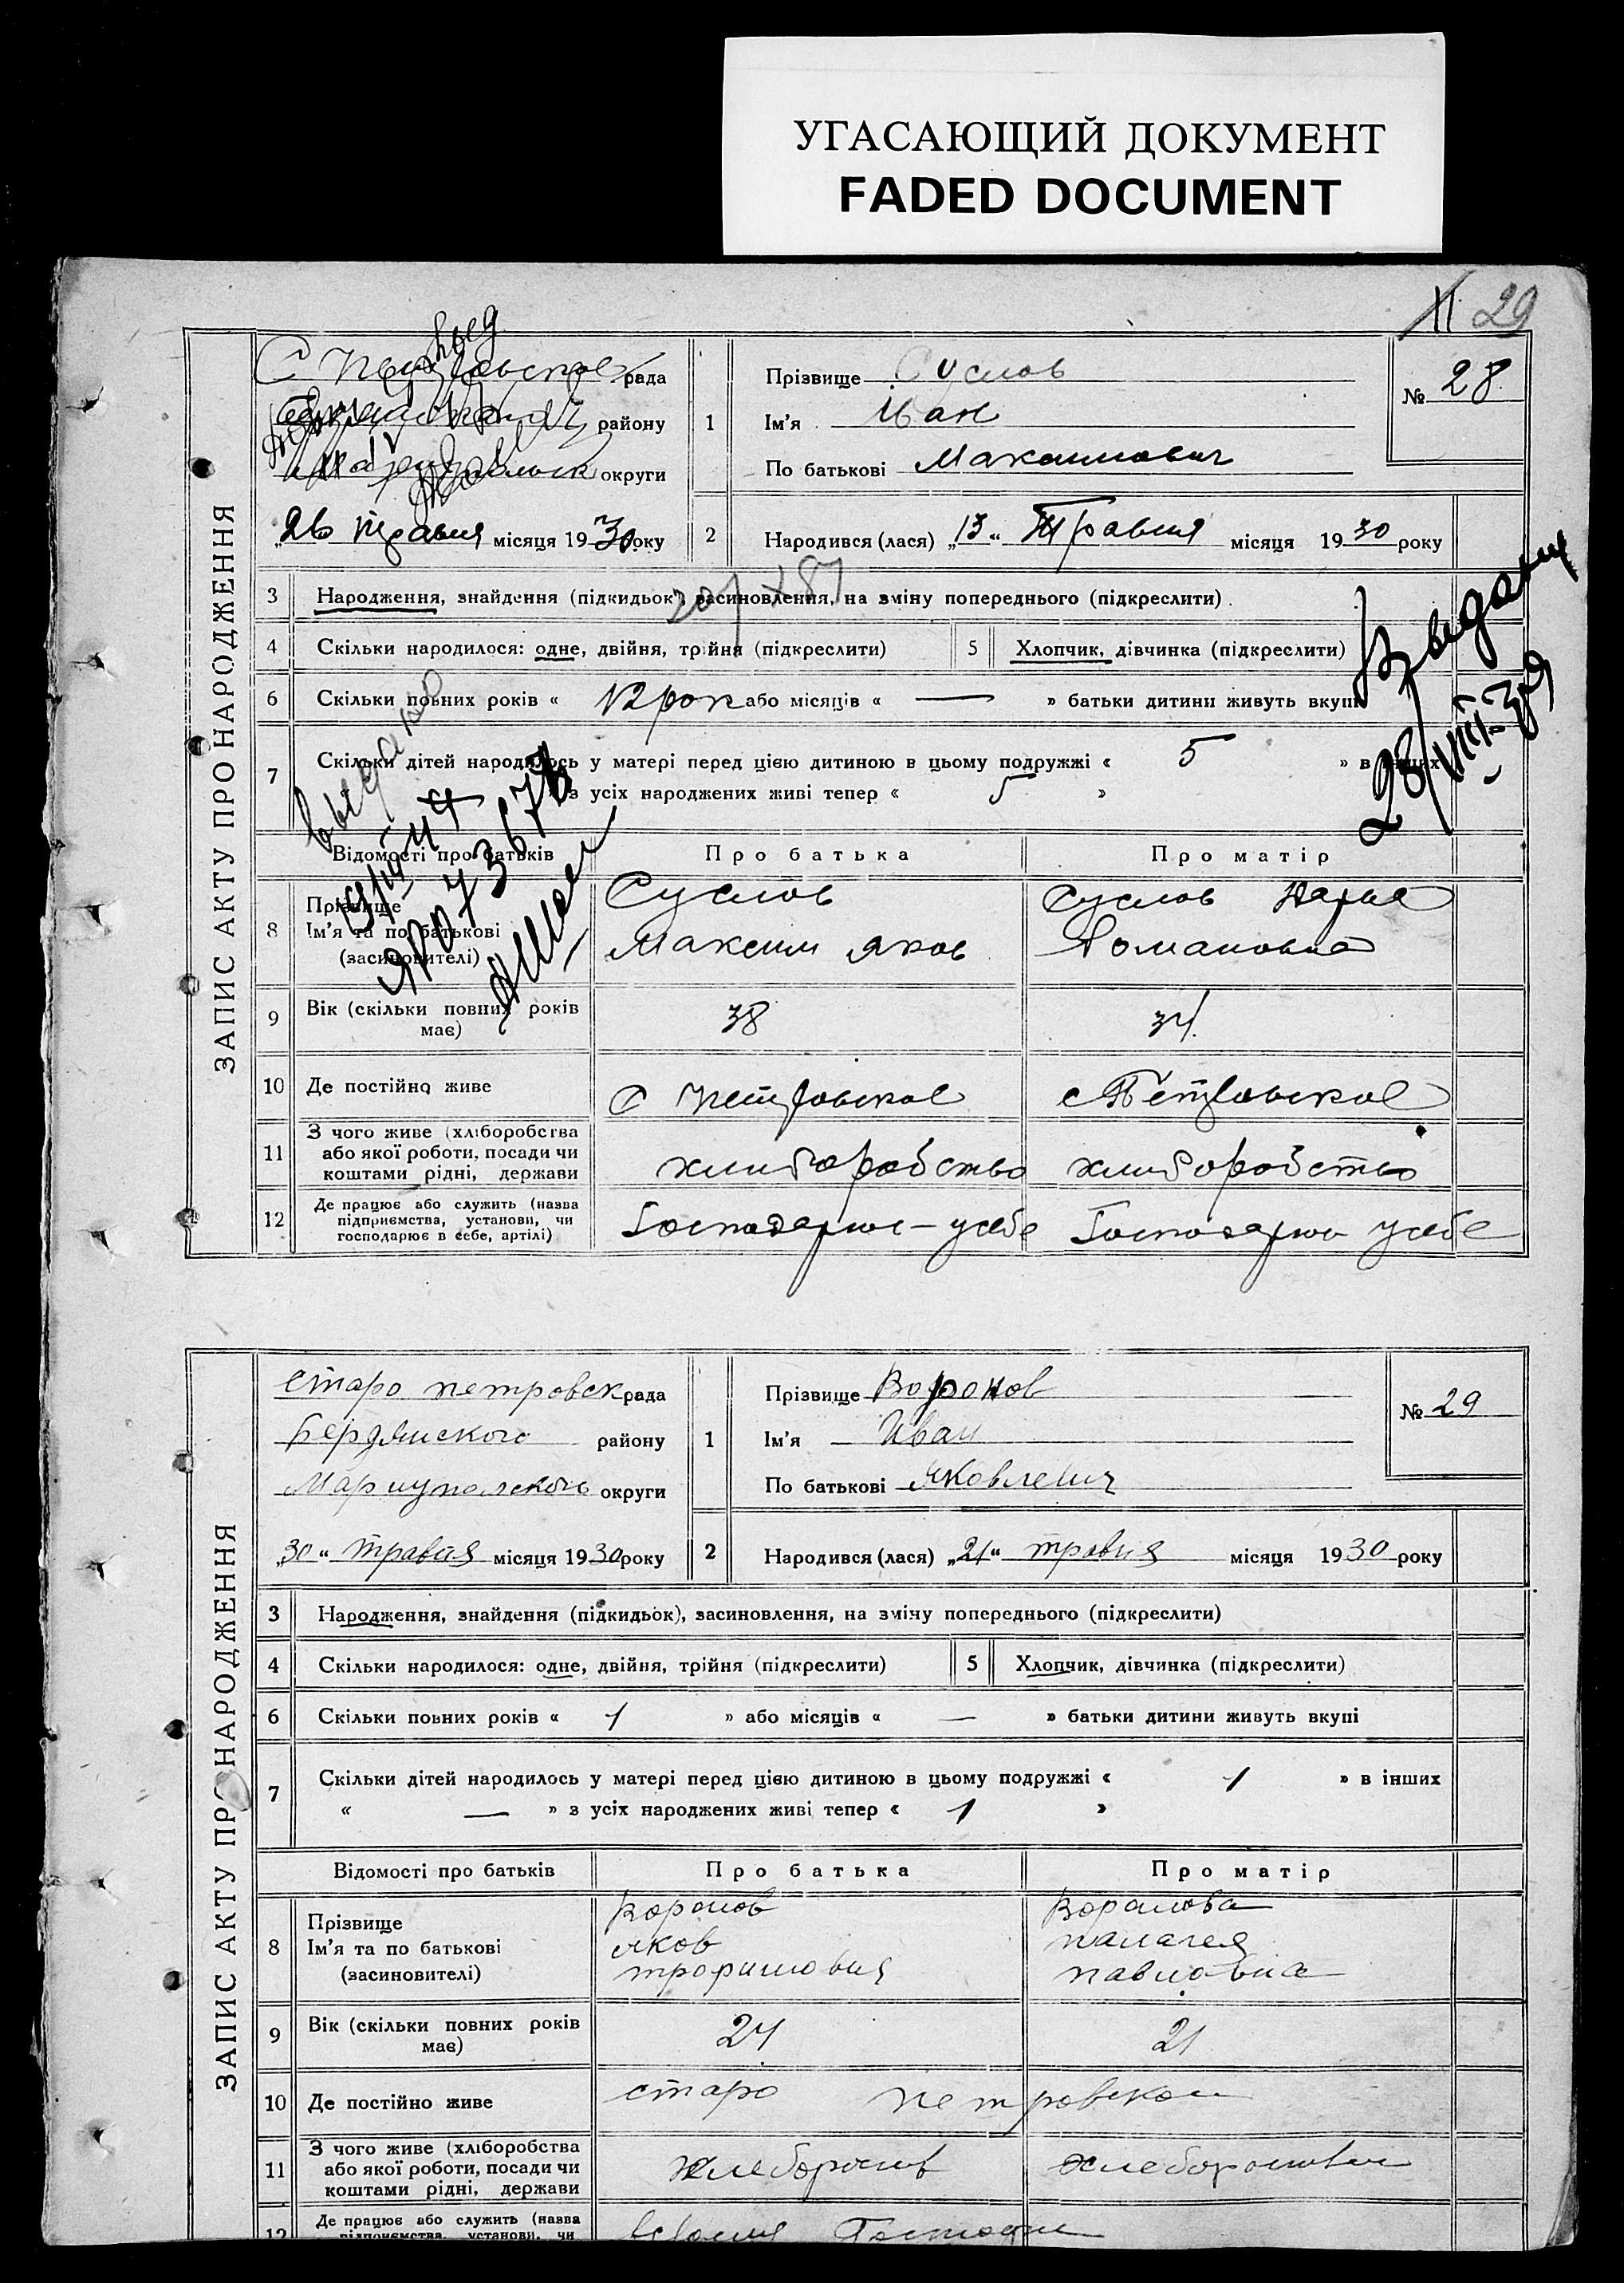 УГАСАЮЩИЙ ДОКУМЕНТ
FADED DOCUMENT
11 29
ЗАПИС АКТУ ПРО НАРОДЖЕННЯ
С Петровское рада
району
округи
„26 травня місяця 1930 року
1
Прізвище Суслов
Ім'я Иван
По батькові Максимович
№ 28
2
Народився (лася) „13“ Травня місяця 1930 року
3 Народження, знайдення (підкидьок), засиновлення, на зміну попереднього (підкреслити)
4 Скільки народилося: одне, двійня, трійня (підкреслити)
5 Хлопчик, дівчинка (підкреслити)
6 Скільки повних років « 12 рок або місяців « — » батьки дитини живуть вкупі
7 Скільки дітей народилось у матері перед цією дитиною в цьому подружжі « 5 » в інших
» з усіх народжених живі тепер « 5 »
выдано
Выдано
28/VIII-39
Відомості про батьків
Про батька
Про матір
8 Прізвище
Ім'я та по батькові
(засиновителі)
Суслов
Максим Яков
Суслов Дарья
Романовна
9 Вік (скільки повних років
має)
38
34
10 Де постійно живе
С Петровское
с Петровское
11 З чого живе (хліборобства
або якої роботи, посади чи
коштами рідні, держави
хлиборобство
хлиборобство
12 Де працює або служить (назва
підприємства, установи, чи
господарює в себе, артілі)
Господарює - у себе
Господарює у себе
ЗАПИС АКТУ ПРО НАРОДЖЕННЯ
Старо петровск рада
Бердянского району
Мариупольского округи
„30“ травня місяця 1930 року
1
Прізвище Воронов
Ім'я Иван
По батькові Яковлевич
№ 29
2
Народився (лася) „21“ травня місяця 1930 року
3 Народження, знайдення (підкидьок), засиновлення, на зміну попереднього (підкреслити)
4 Скільки народилося: одне, двійня, трійня (підкреслити)
5 Хлопчик, дівчинка (підкреслити)
6 Скільки повних років « 1 » або місяців « — » батьки дитини живуть вкупі
7 Скільки дітей народилось у матері перед цією дитиною в цьому подружжі « 1 » в інших
« — » з усіх народжених живі тепер « 1 »
Відомості про батьків
Про батька
Про матір
8 Прізвище
Ім'я та по батькові
(засиновителі)
Воронов
Яков
трофимович
Воронова
палагея
павловна
9 Вік (скільки повних років
має)
24
21
10 Де постійно живе
старо петровском
11 З чого живе (хліборобства
або якої роботи, посади чи
коштами рідні, держави
12 Де працює або служить (назва
підприємства, установи, чи